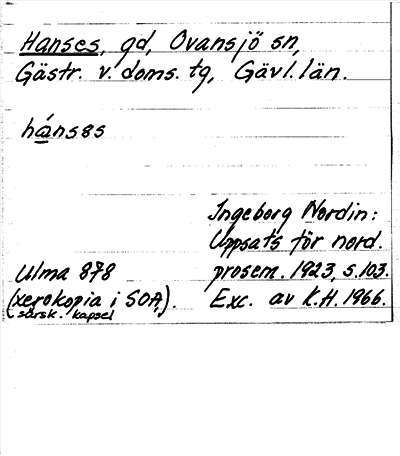 Hanses, gd, Ovansjö sn,
Gästr. v. doms. tg, Gävl. län.
hánsəs
Ingeborg Nordin:
Uppsats för nord.
Ulma 878 prosem. 1923, s. 103.
(xerokopia i SOA). Exc. av K.H. 1966.
särsk. kapsel